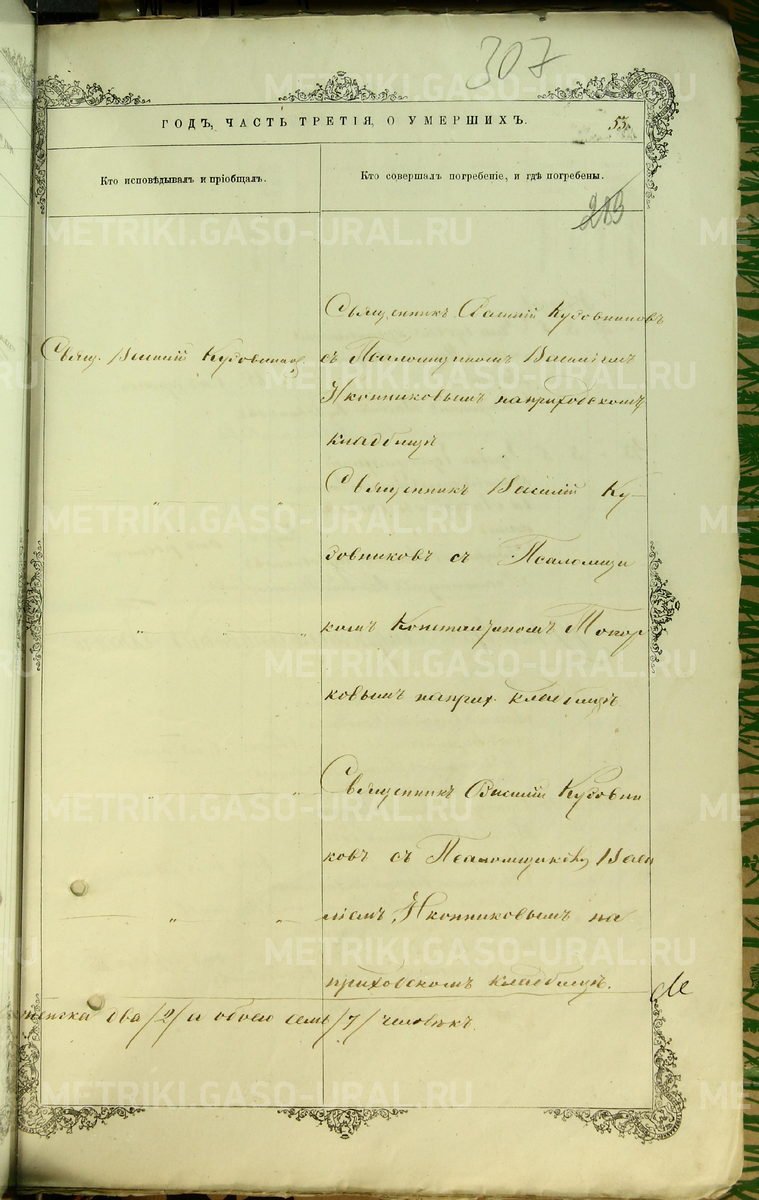 307
ГОДЪ, ЧАСТЬ ТРЕТІЯ, О УМЕРШИХЪ.
53
Кто исповѣдывалъ и пріобщалъ.
Кто совершалъ погребеніе, и гдѣ погребены.
283
Священникъ Василій Кудовниковъ
Свящ. Василій Кудовников
съ Псаломщикомъ Василіемъ
Иконниковымъ на приховскомъ
кладбищѣ
Священникъ Василій Ку-
довниковъ съ Псаломщи
комъ Константиномъ Топор
ковымъ на прих. кладбищѣ
Священникъ Василій Кудовни
ковъ съ Псаломщикомъ Васи
ліемъ Иконниковымъ на
приховскомъ кладбищѣ.
два /2/ и обоего семь /7/ человѣкъ.
METRIKI.GASO-URAL.RU